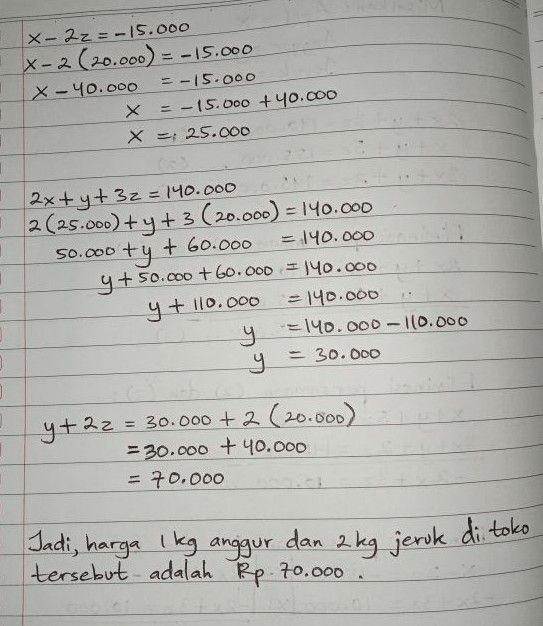 x - 2z = -15.000
x - 2 (20.000) = -15.000
x - 40.000 = -15.000
x = -15.000 + 40.000
x = 25.000
2x + y + 3z = 140.000
2(25.000) + y + 3 (20.000) = 140.000
50.000 + y + 60.000 = 140.000
y + 50.000 + 60.000 = 140.000
y + 110.000 = 140.000
y = 140.000 - 110.000
y = 30.000
y + 2z = 30.000 + 2 (20.000)
= 30.000 + 40.000
= 70.000
Jadi, harga 1 kg anggur dan 2 kg jeruk di toko
tersebut adalah Rp. 70.000 .